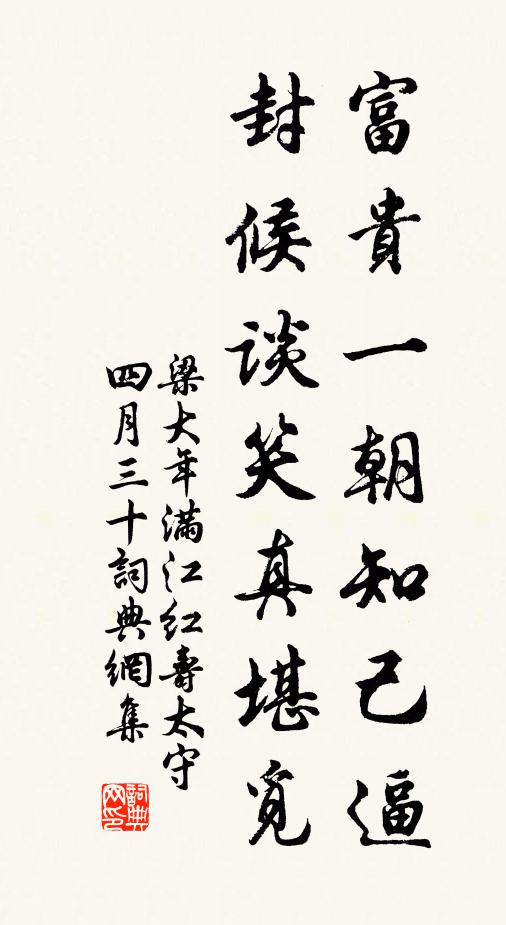 富貴一朝知己逼
封候談笑真堪覓
梁大年满江红壽太守
四月三十詞典網集
詞典网印